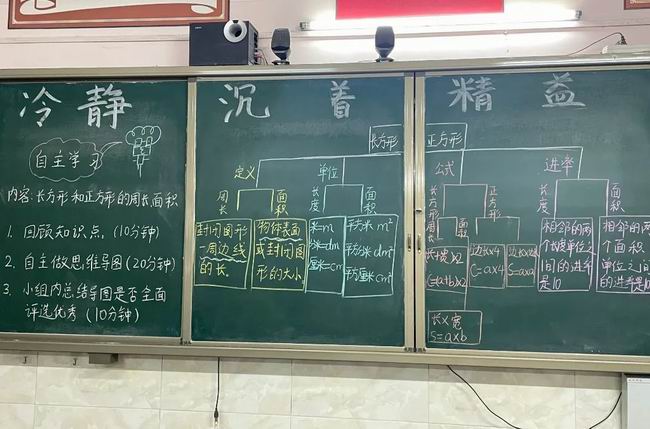 冷静 沉着 精益
自主学习
内容:长方形和正方形的周长面积
1. 回顾知识点(10分钟)
2. 自主做思维导图(20分钟)
3. 小组内总结导图是否全面
评选优秀(10分钟)
长方形 正方形
定义 单位 公式 进率
周长 面积
长度 面积
长方形 正方形
长度 面积
封闭图形
一周边线
的长。
物体表面
或封闭图
形的大小
米=m
分米=dm
厘米=cm
平方米 m²
平方分米 dm²
平方厘米 cm²
周 面积
(长+宽)×2
C=(a+b)×2
长×宽
S=a×b
边长×4
C=a×4
边长×边长
S=a×a
相邻的两
个长度单位之
间的进率
是10
相邻的两
个面积
单位之间
的进率是10